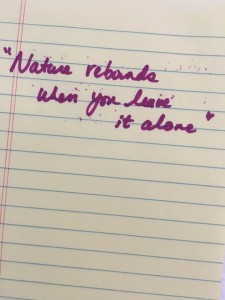 "Nature rebounds
when you leave
it alone"